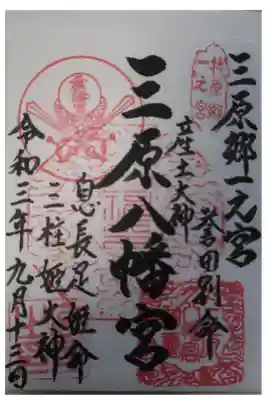 三原郷一元宮
誉田別命
産土大神
三原八幡宮
息長足姫命
三柱姫大神
令和三年九月十三日